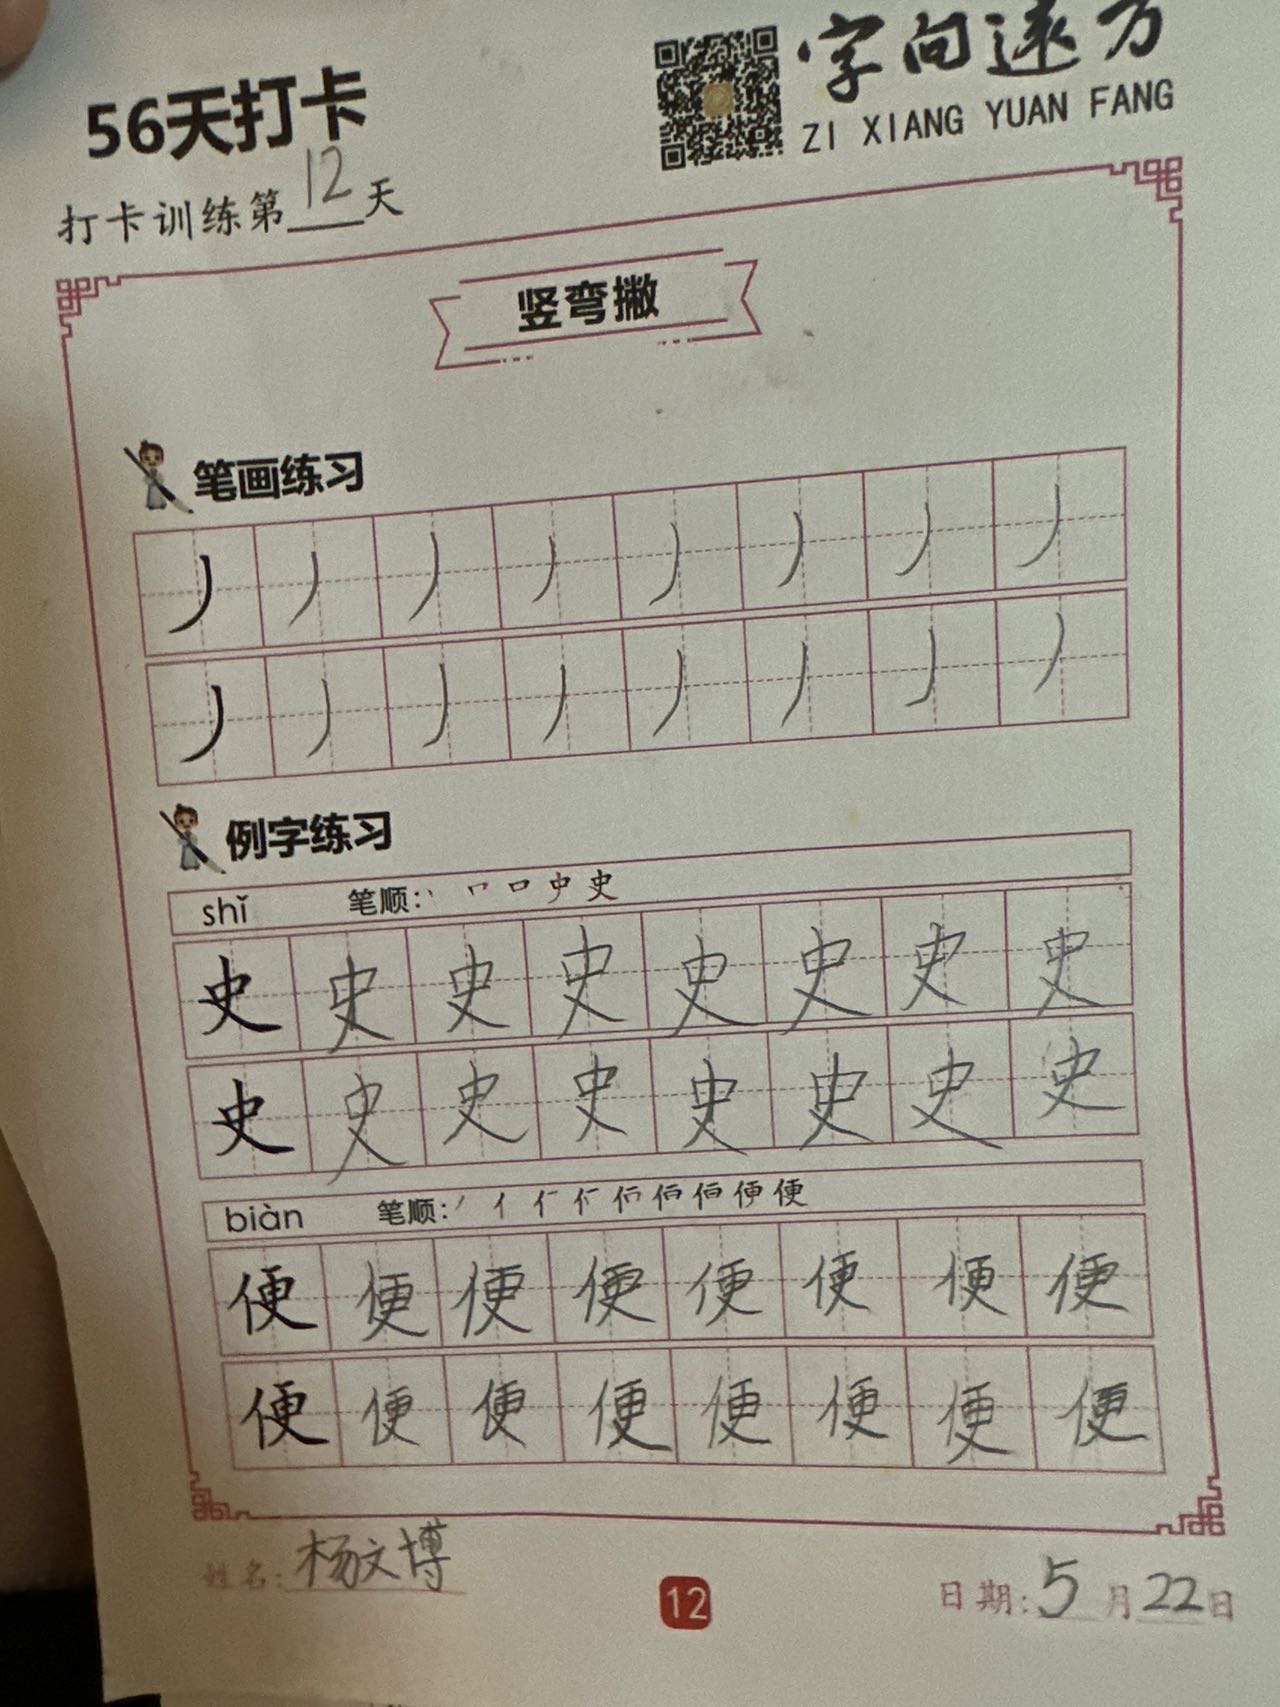 字向远方
ZI XIANG YUAN FANG
56天打卡
打卡训练第12天
竖弯撇
笔画练习
丿 丿 丿 丿 丿 丿 丿 丿
丿 丿 丿 丿 丿 丿 丿 丿
例字练习
shǐ 笔顺: 丨 𠃍 口 史 史
史 史 史 史 史 史 史 史
史 史 史 史 史 史 史 史
biàn 笔顺: 丿 亻 便
便 便 便 便 便 便 便 便
便 便 便 便 便 便 便 便
姓名: 杨文博
12
日期: 5月22日